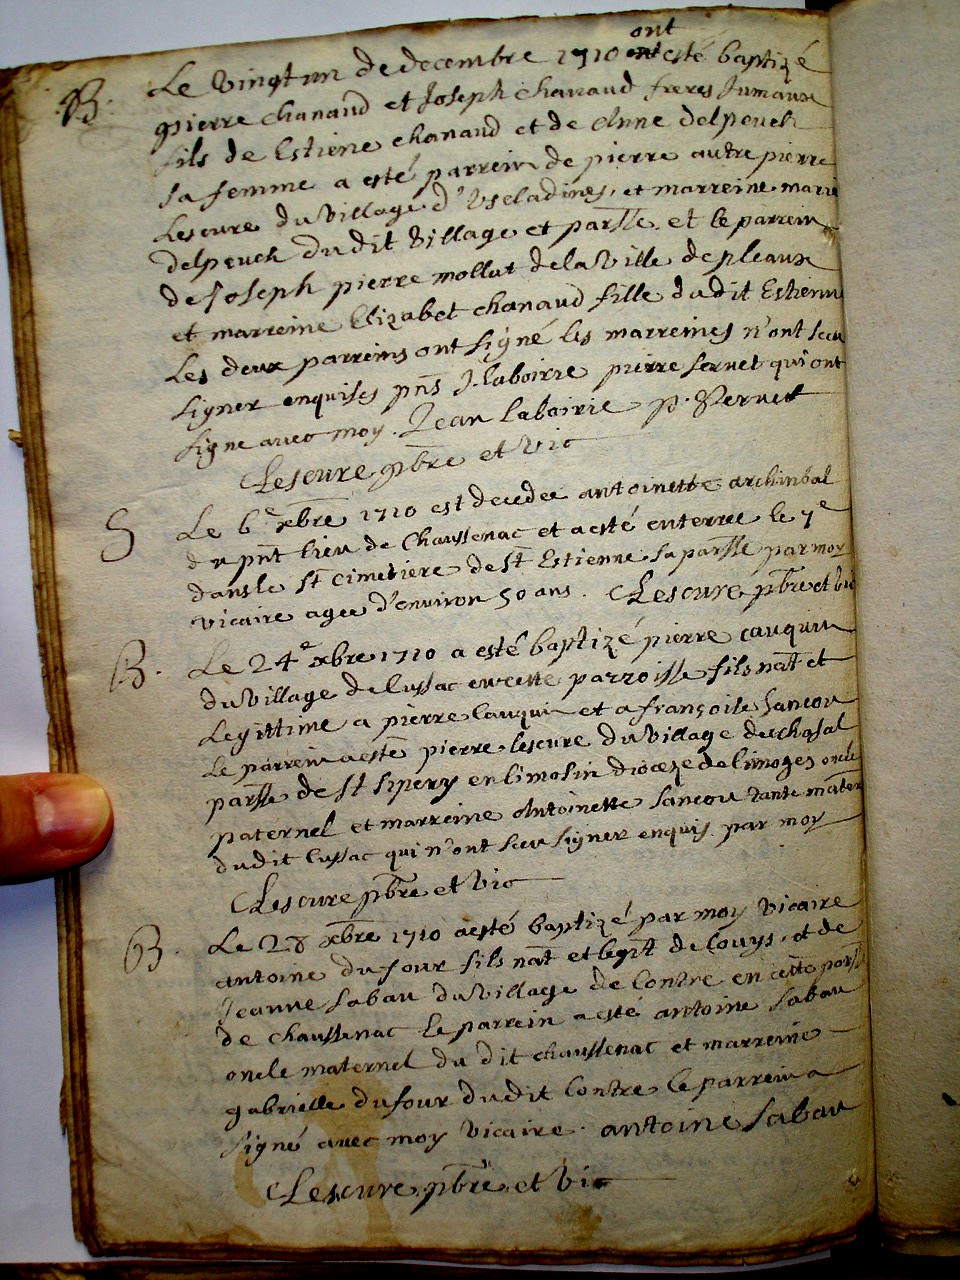 ont
B. Le vingt un de decembre 1710 esté baptizé
pierre chanaud et Joseph chanaud freres Jumaux
fils de Estiene chanaud et de Anne delpeuch
sa femme a esté parrein de pierre autre pierre
Lescure du village d'Useladines et marreine marie
delpeuch du dit village et parsse et le parrein
de Joseph pierre mollat de la ville de pleaux
et marreine Elizabet chanaud fille dudit Estienne
Les deux parreins ont signé les marreines n'ont sceu
signer enquises pnts J. laboirie pierre sernet qui ont
signe avec moy. Jean Laboirie p. Sernet
Lescure pbre et vic
S Le 6e xbre 1710 est decedee antoinette archinbal
du pnt lieu de Chaussenac et a esté enterree le 7e
dans le St Cimetiere de St Estienne sa parsse par moy
vicaire agee d'environ 50 ans. Lescure pbre et vic
B. Le 24e xbre 1710 a esté baptizé pierre cauquin
du village de lussac en cette parroisse fils nat et
Legittime a pierre Cauquin et a françoise sancou
Le parrein a esté pierre lescure du village du chasal
parsse de St Sipery en limosin dioceze de limoges oncle
paternel et marreine Antoinette sancou tante matern
dudit lussac qui n'ont sceu signer enquis par moy
Lescure pbre et vic
B. Le 28 xbre 1710 a esté baptizé par moy vicaire
antoine dufour fils nat et legit de Louys et de
Jeanne sabau du village de Contre en cette parsse
de chaussenac le parrein a esté antoine sabau
oncle maternel du dit chaussenac et marreine
gabrielle dufour dudit Contre le parrein a
signé avec moy vicaire. antoine sabau
Lescure pbre et vic